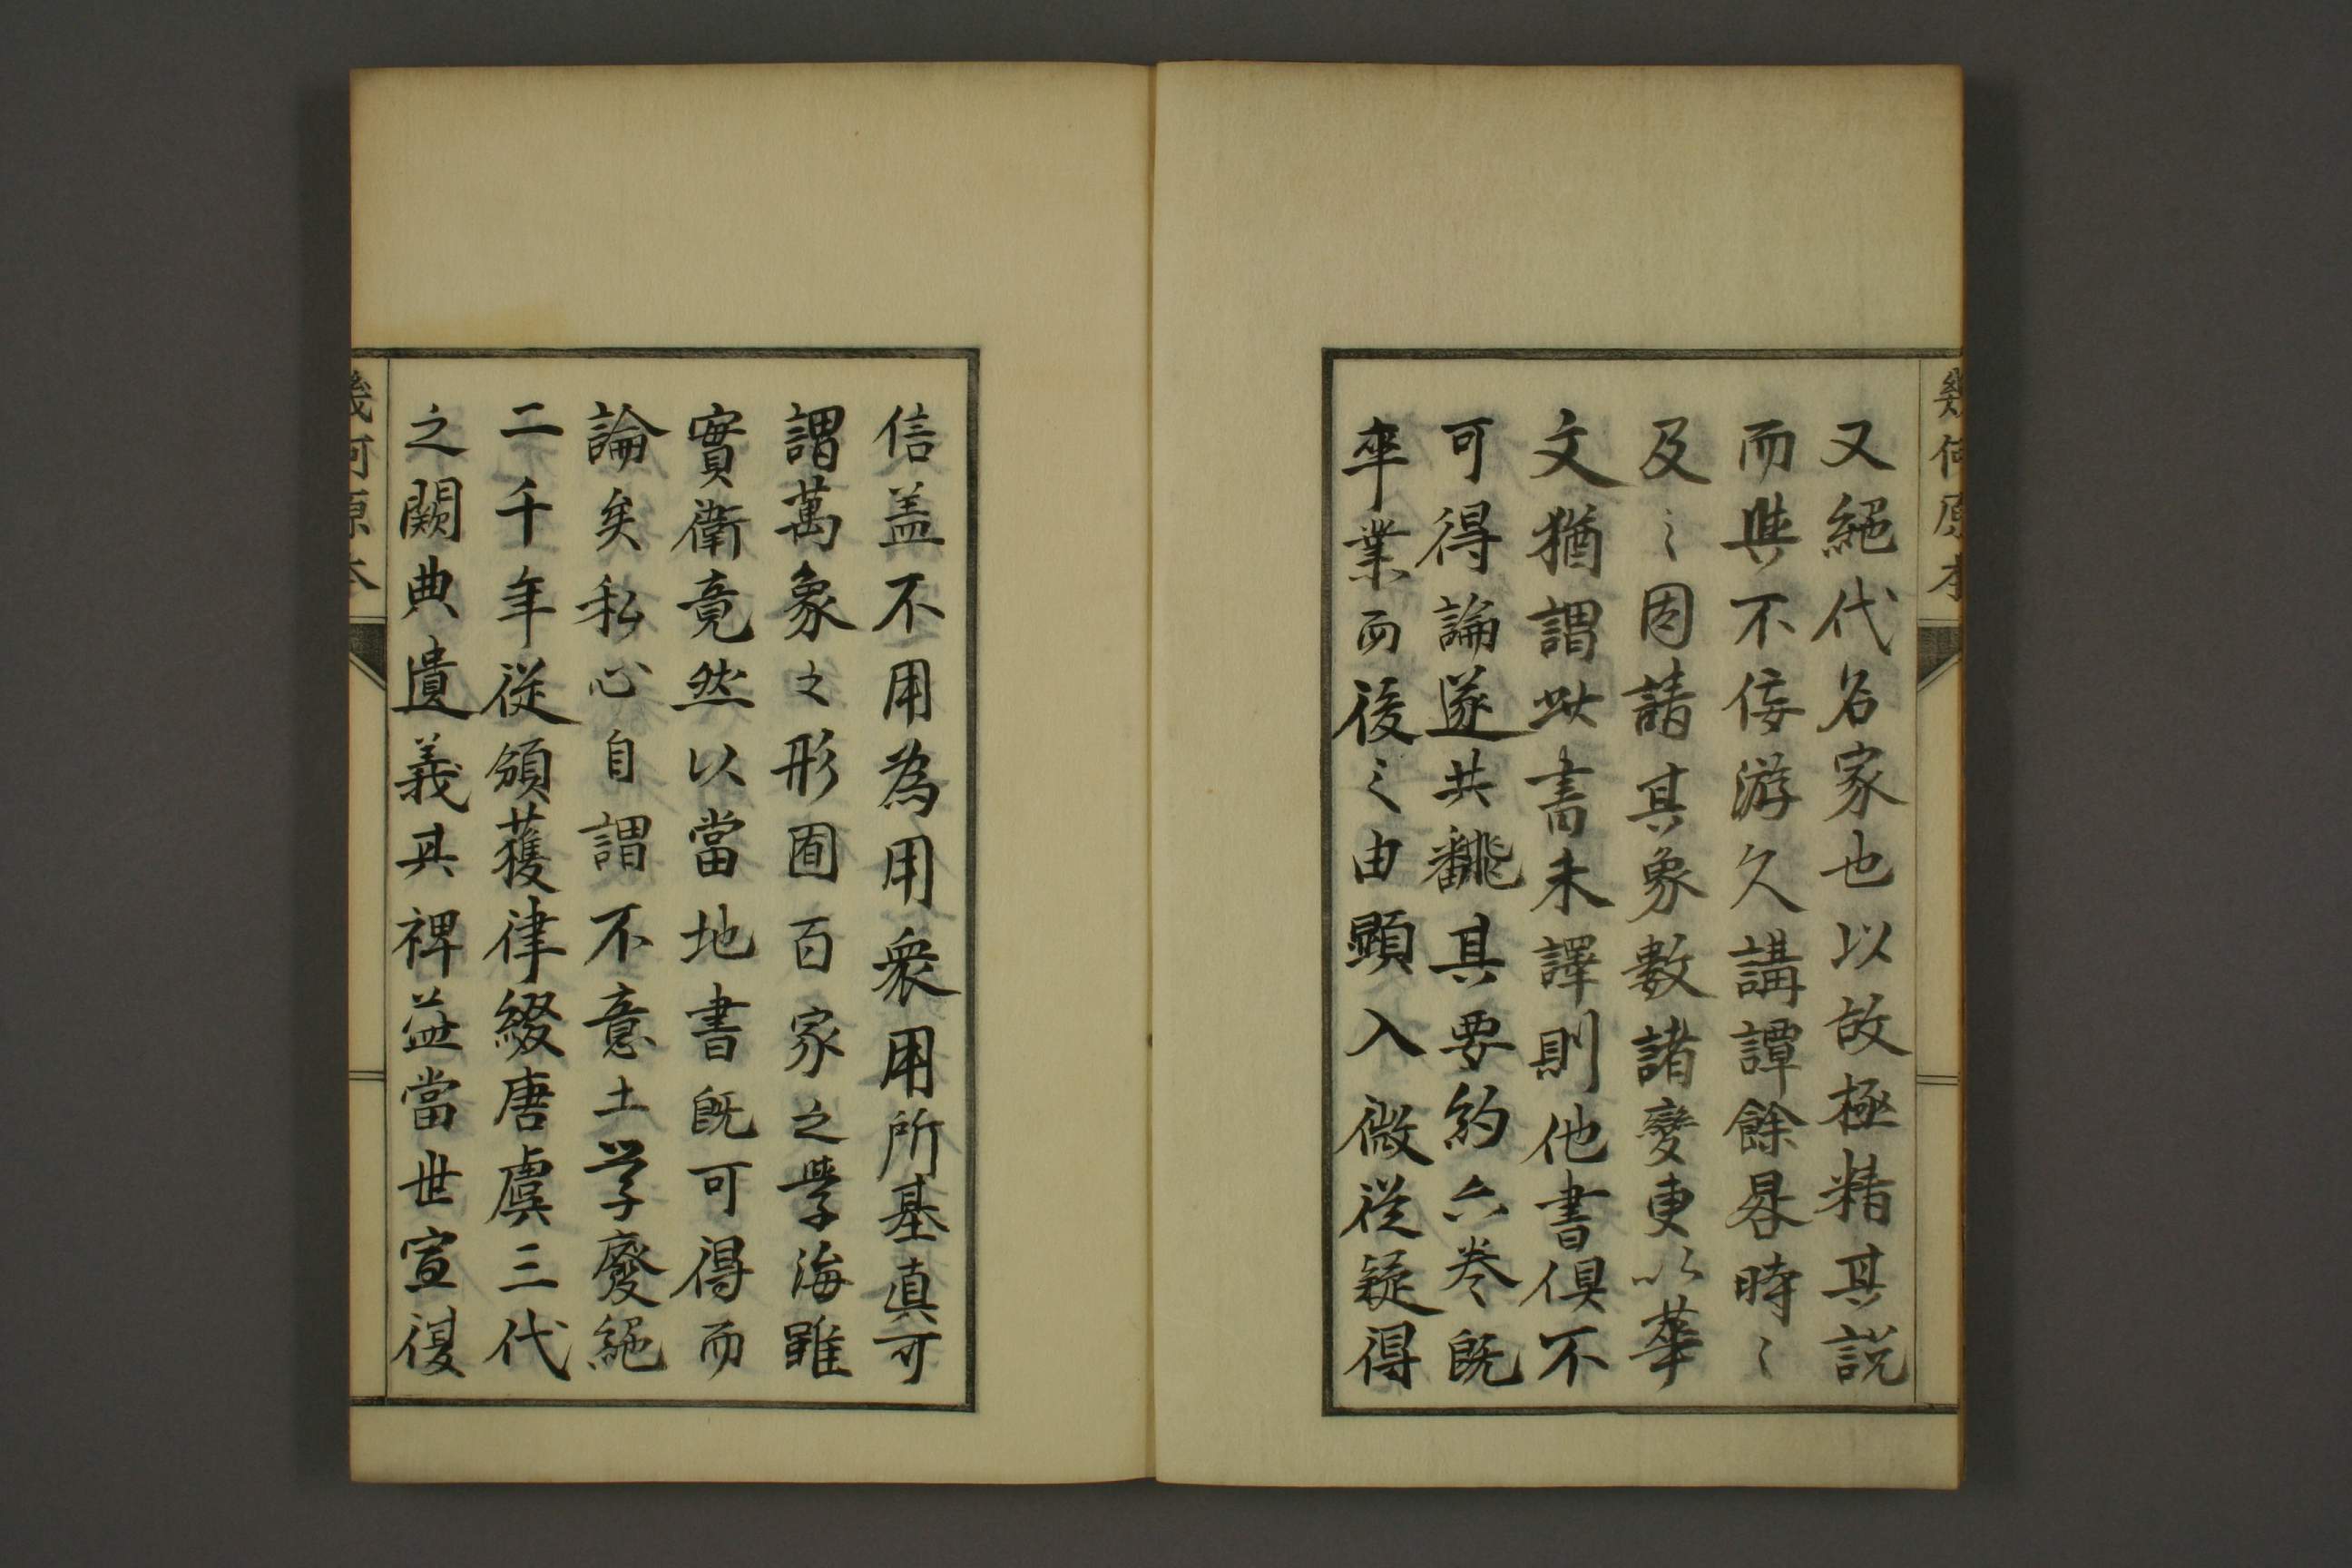 幾何原本
又絕代名家也以故極精其說
而與不佞游久講譚餘晷時〻
及〻因請其象數諸書更以華
文猶謂此書未譯則他書俱不
可得論遂共飜其要約六卷既
卒業而復之由顯入微從疑得
信盖不用為用衆用所基真可
謂萬象之形囿百家之學海雖
實衛竟然以當地書既可得而
論矣私心自謂不意古學廢絕
二千年從頒獲律綴唐虞三代
之闕典遺義其裨益當世宣復
幾何原本